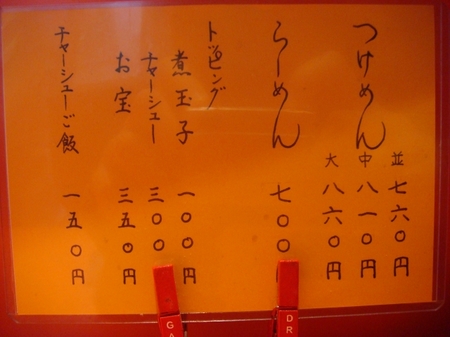 つけめん
並 七六〇円
中 八一〇円
大 八六〇円
らーめん 七〇〇
トッピング
煮玉子 一〇〇円
チャーシュー 三〇〇
お宝 三五〇円
チャーシューご飯 一五〇円
GA
DR